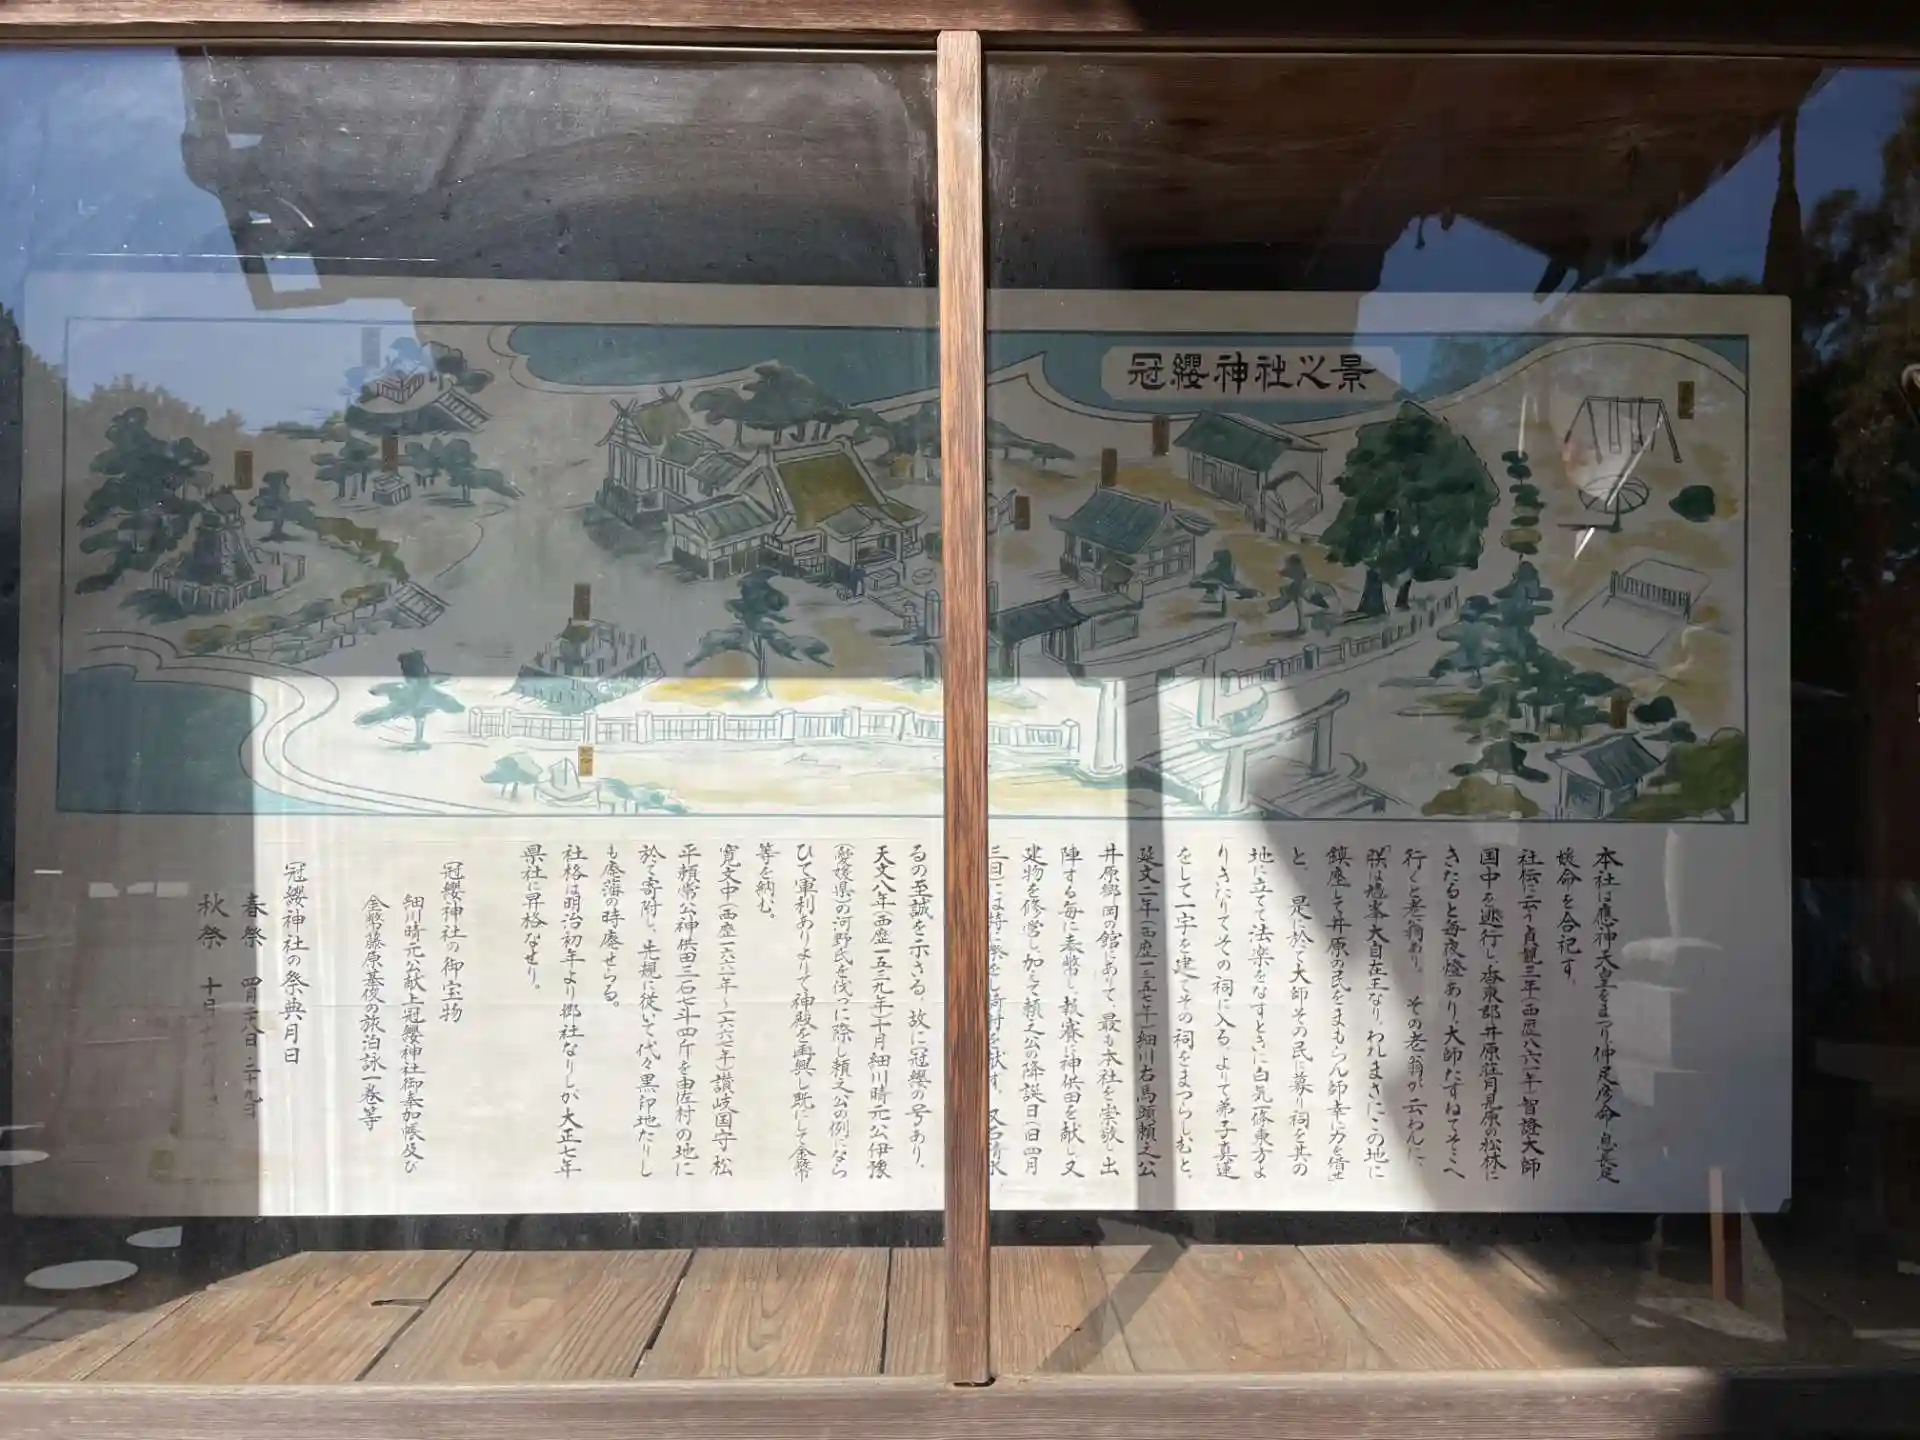 冠纓神社之景
本社は應神天皇をまつり、仲足彦命 息長足
媛命を合祀す。
社伝に云う貞観三年(西暦八六一年)智證大師
国中を巡行し、香東郡井原荘月見原の松林に
きたると毎夜燈あり、大師たずねてそこへ
行くと老翁あり。 その老翁が云わんに、
「朕は 大自在王なり。われまさにこの地に
鎮座して井原の民をまもらん師幸に力を借せ」
と、是に於て大師その民に募り祠を其の
地に立てて法楽をなすときに白気一條東方よ
りきたりてその祠に入る。よりて弟子真蓮
をして一宇を建てその祠をまつらしむと。
延文二年(西歴一三五七年)細川右馬頭頼之公
井原郷岡の館にありて、最も本社を崇敬し出
陣する毎に奉幣し、報賽に神供田を献じ又
建物を修営し加えて頼之公の降誕日(旧四月
三日)には特に祭をし
るの至誠を示さる、故に冠纓の号あり、
天文八年(西歴一五三九年)十月細川晴元公伊豫
(愛媛県)の河野氏を伐つに際し頼之公の例になら
ひて軍利ありよりて神殿を再興し既にして金幣
等を納む。
寛文中(西歴一六六一年~一六六七年)讃岐国守松
平頼常公神供田三石七斗四升を由佐村の地に
於て寄附し、先規に従いて代々黒印地たりし
も廃藩の時廃せらる。
社格は明治初年より郷社なりしが大正七年
県社に昇格なせり。
冠纓神社の御宝物
細川晴元公献上冠纓神社御奉加帳及び
金幣藤原基俊の旅泊詠一巻等
冠纓神社の祭典月日
春祭 四月二十八日・二十九日
秋祭 十月